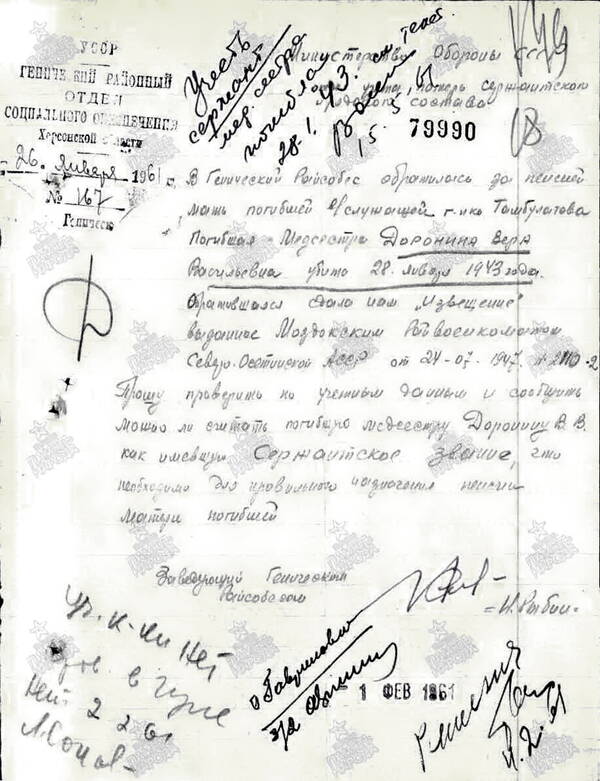 УССР
ГЕНИЧЕСКИЙ РАЙОННЫЙ
ОТДЕЛ
СОЦИАЛЬНОГО ОБЕСПЕЧЕНИЯ
Херсонской области
26 января 1961 г.
№ 167
Геническ
Учесть
сержант
мед. сестра
погибла
28.1.43.
15.5.61
Министерство Обороны СССР
учета потерь сержантского
и рядового состава
79990
В Генический Райсобес обратилась за пенсией
мать погибшей служащей г-нка Тамбулатова
Погибшая Медсестра Доронина Вера
Васильевна убита 28 января 1943 года.
Обратившаяся сдала нам "Извещение"
выданное Моздокским Райвоенкоматом
Северо-Осетинской АССР от 24-07-1947
Прошу проверить по учетным данным и сообщить
можно ли считать погибшую медсестру Доронину В.В.
как имевшую Сержантское звание, что
необходимо для правильного назначения пенсии
матери погибшей
Заведующий Геническим
Райсобесом
Уч. к-ки нет
в
нет 2 2 61
1 ФЕВ 1961